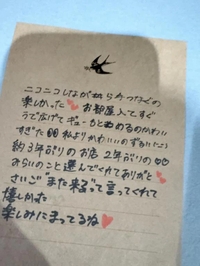 ニコニコしながら手つなぐの
楽しかった❤ お部屋入ってすぐ
うで広げてギューもとめるのかわい
すぎた 私よりかわいいのずるい
約3年ぶりのお店 2年ぶりの♡♡
みらいのこと選んでくれてありがと
さいご"また来る"って言ってくれて
嬉しかった
楽しみにまってるね❤